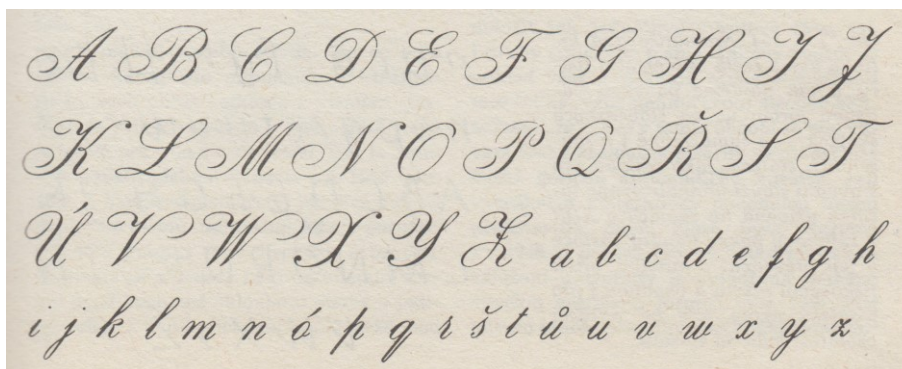 A B C D E F G H I J
K L M N O P Q Ř S T
Ú V W X Y Z a b c d e f g h
i j k l m n ó p q r š t ů u v w x y z